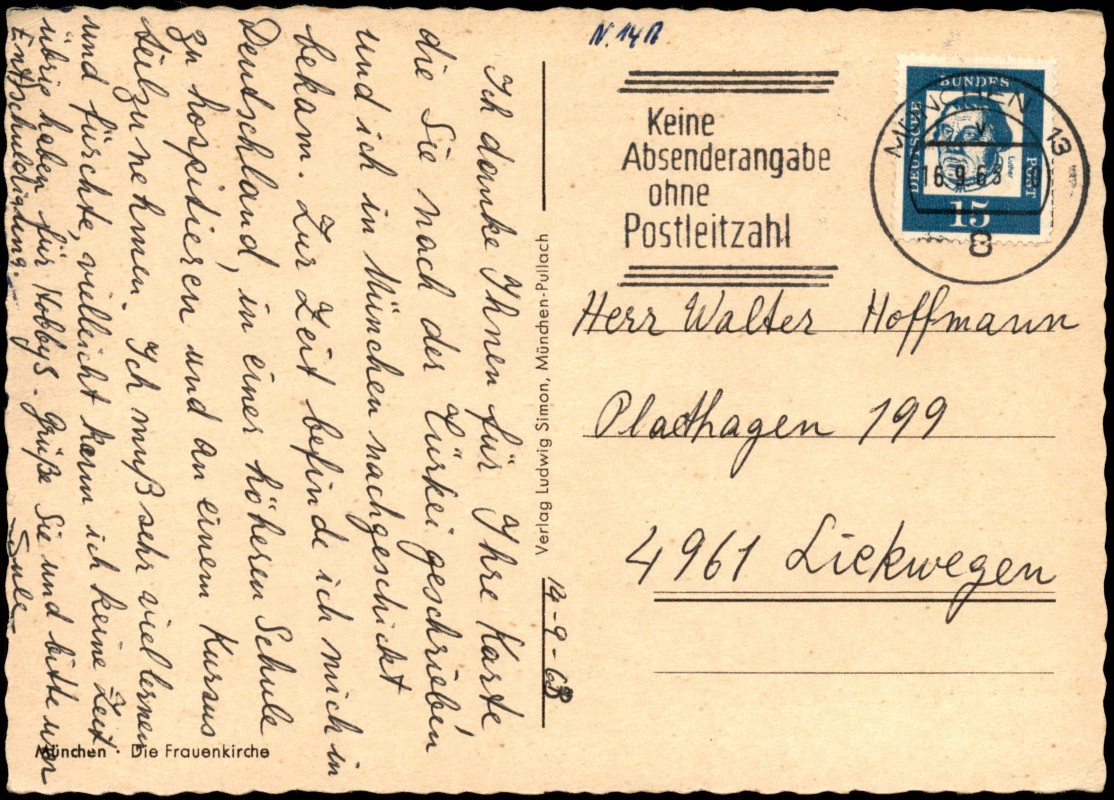 Ich danke Ihnen für Ihre Karte,
die Sie nach der Türkei geschrieben
und ich in München nachgeschickt
bekam. Zur Zeit befinde ich mich in
Deutschland, in einer höheren Schule
zu hospitieren und an einem Kursus
teilzunehmen. Ich muß sehr viel lernen
und fürchte, vielleicht kann ich keine Zeit
übrig haben für Hobbys. Grüße Sie und bitte um
Entschuldigung.
München · Die Frauenkirche
Verlag Ludwig Simon, München-Pullach
14-9-63
N. 14
Keine
Absenderangabe
ohne
Postleitzahl
DEUTSCHE BUNDESPOST
Luther
15
MÜNCHEN 13
16.9.63
8
Herr Walter Hoffmann
Plathagen 199
4961 Liekwegen